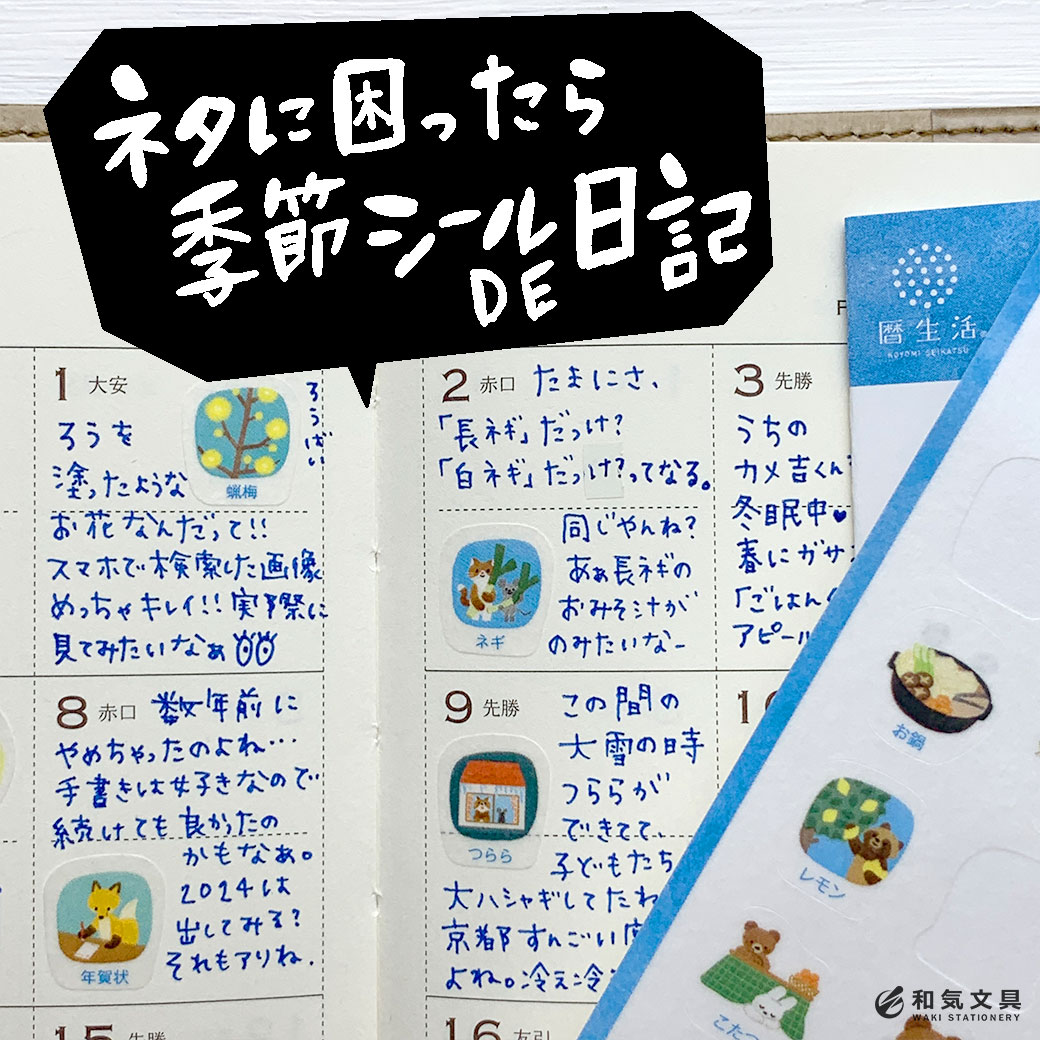 ネタに困ったら
季節シールDE日記
暦生活
KOYOMI SEIKATSU
1 大安
ろうを
塗ったような
お花なんだって!!
スマホで検索した画像
めっちゃキレイ!!実際に
見てみたいなぁ
ろうばい
蝋梅
2 赤口 たまにさ、
「長ネギ」だっけ?
「白ネギ」だっけ?ってなる。
同じやんね?
あぁ長ネギの
おみそ汁が
のみたいなー
ネギ
3 先勝
うちの
カメ吉くん
冬眠中♥
春にガサ
「ごはん
アピール
8 赤口 数年前に
やめちゃったのよね…
手書きは好きなので
続けても良かったの
かもなぁ。
2024は
出してみる?
それもアリね.
年賀状
9 先勝 この間の
大雪の時
つららが
できてて、
子どもたち
大ハシャギしてたわ
京都すんごい
よね。冷え冷
つらら
10
15 先勝
16 友引
お鍋
レモン
こたつ
和気文具
WAKI STATIONERY